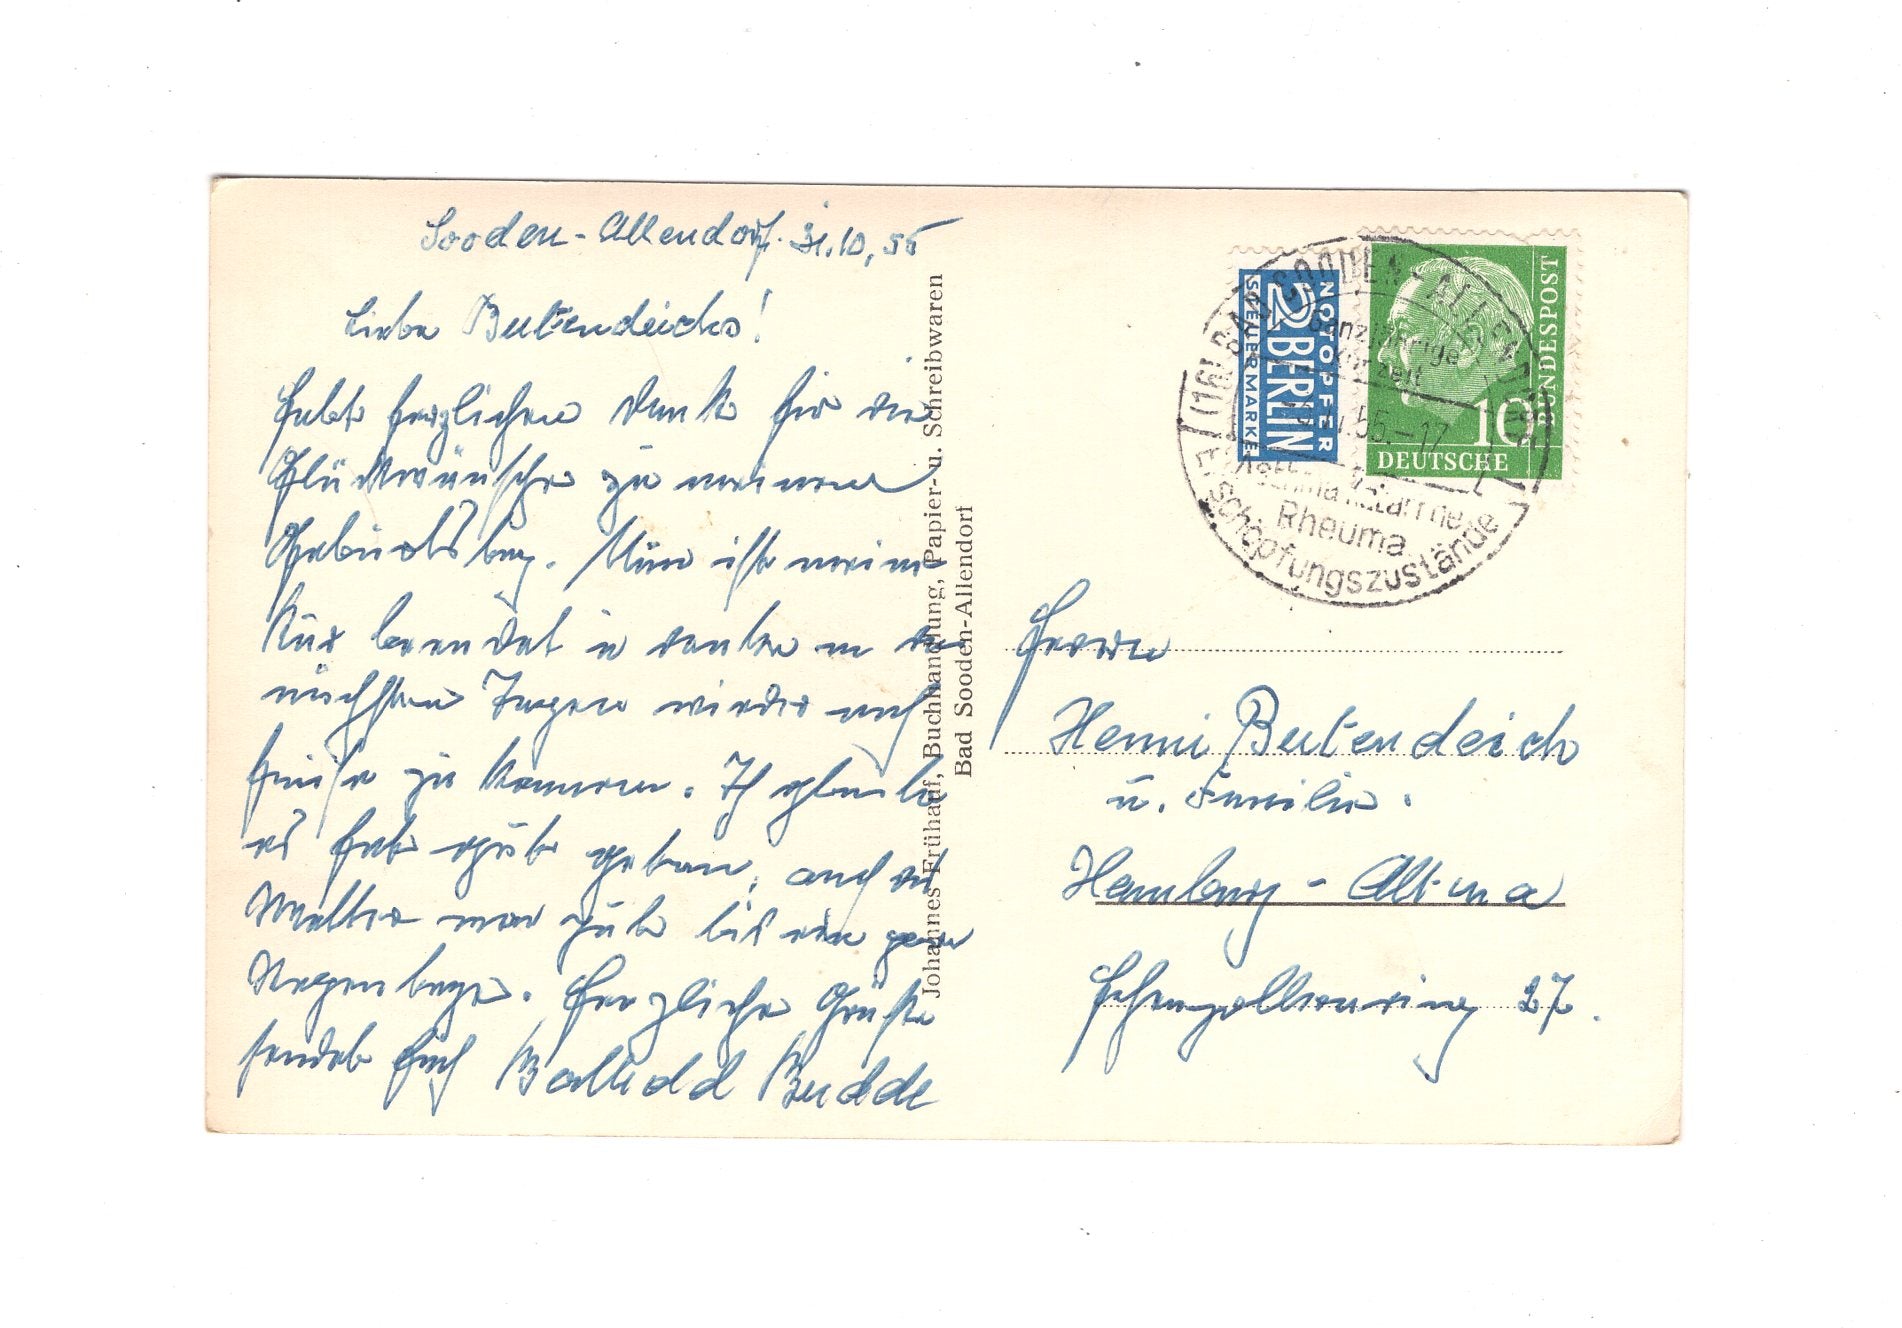 Sooden-Allendorf. 31.10.55
Liebe Butendeichs!
Habt herzlichen Dank für die
Glückwünsche zu meinem
Geburtstag. Nun ist meine
Kur beendet u denke in den
nächsten Tagen wieder nach
Hause zu kommen. Ich glaube
es hat gut getan, auch das
Wetter war gut bis ein paar
Regentage. Herzliche Grüße
sendet Euch Budde
Johannes Frühauf, Buchhandlung, Papier- u. Schreibwaren
Bad Sooden-Allendorf
NOTOPFER
2 BERLIN
STEUERMARKE
DEUTSCHE
BUNDESPOST
10
(16) BAD SOODEN-ALLENDORF
Ganzjährige
Kurzeit
55.-17
Asthma Katarrhe
Rheuma
Erschöpfungszustände
Herrn
Henni Butendeich
u. Familie.
Hamburg - Altona
Hohenzollernring 27.